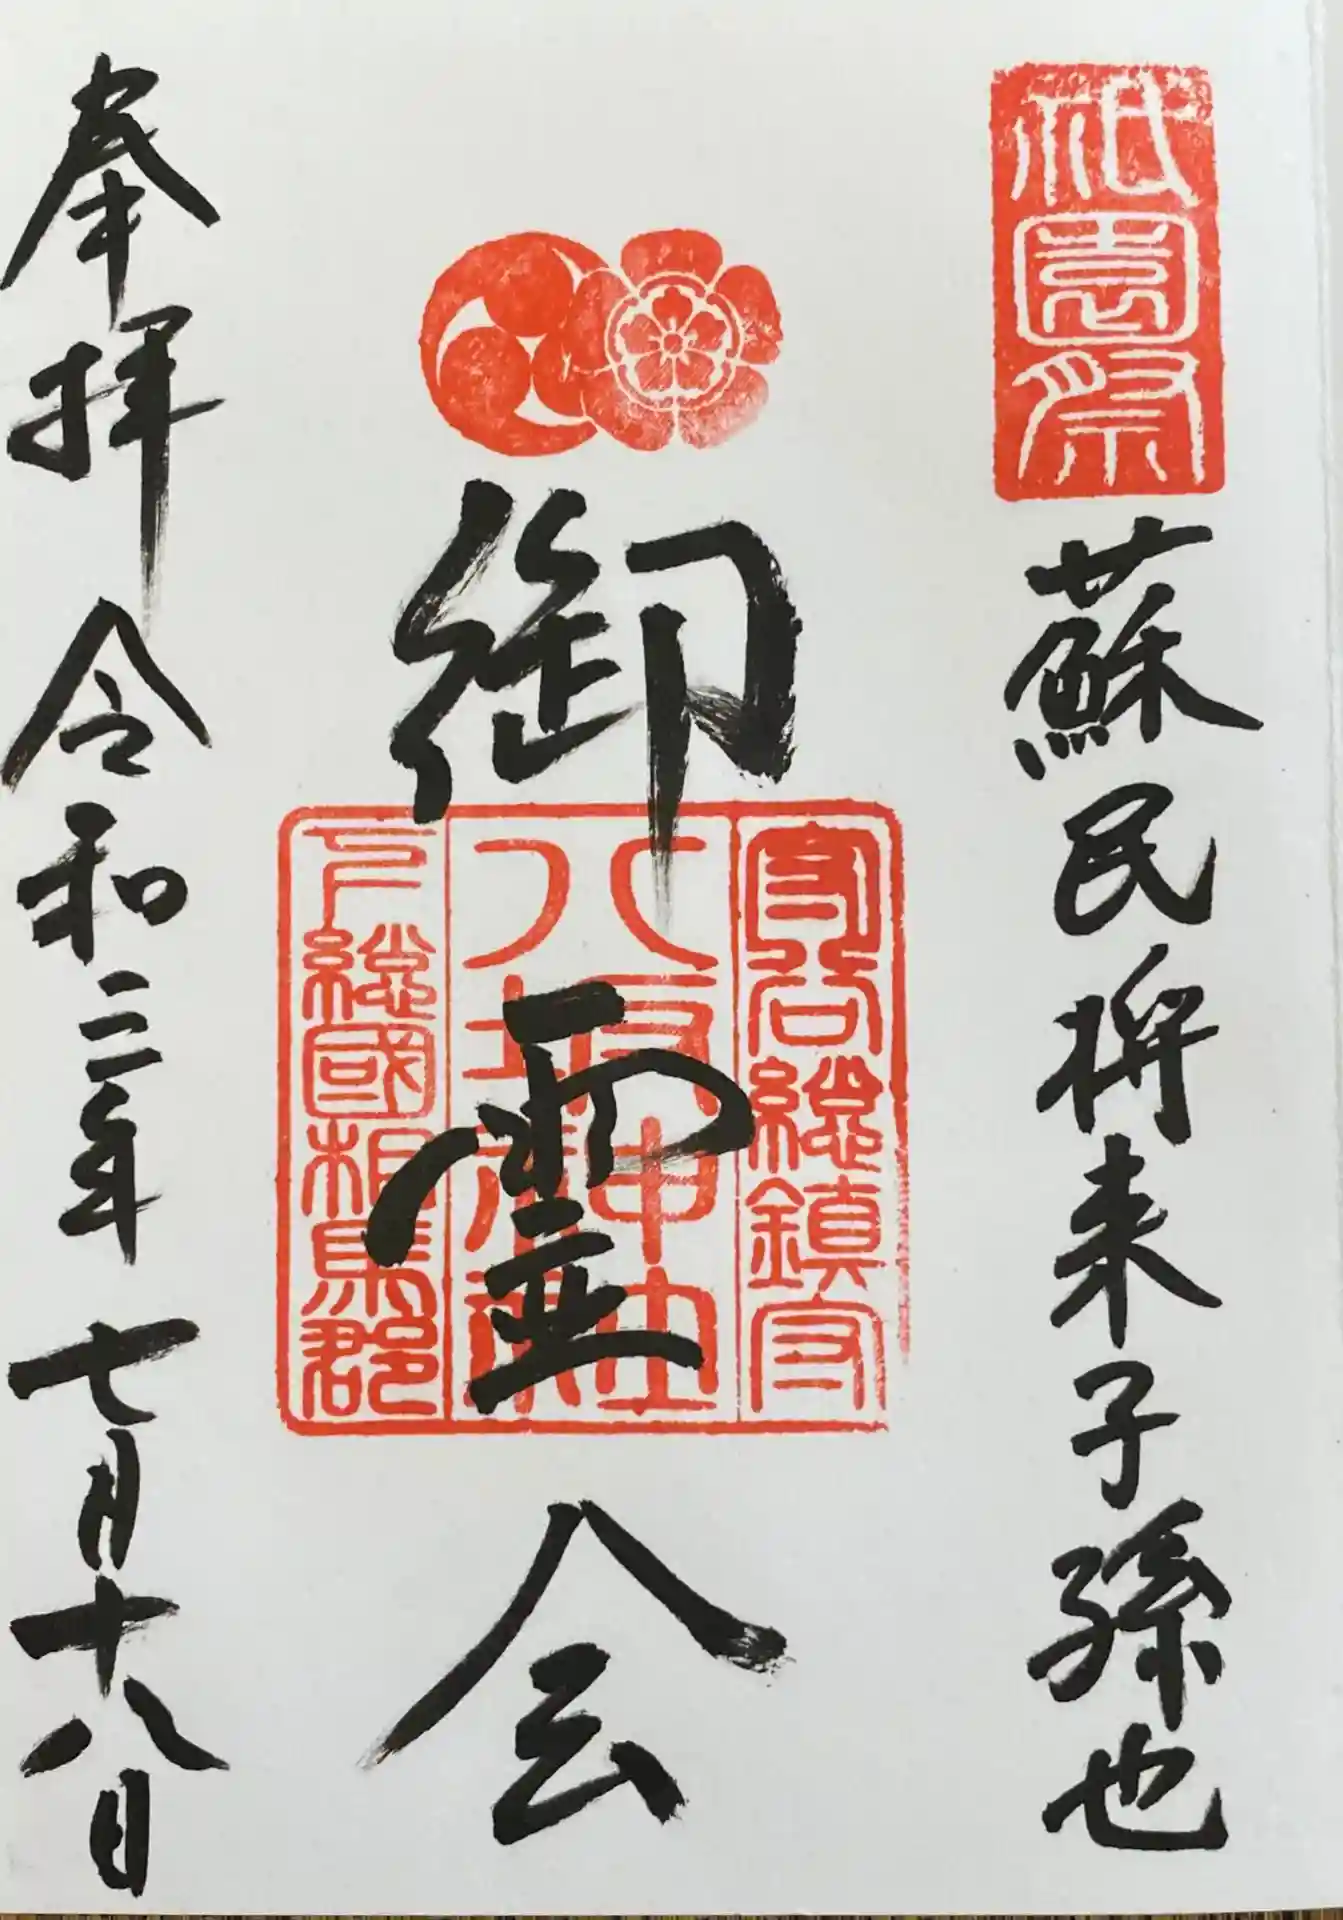 祇園祭
蘇民将来子孫也
御霊会
守谷總鎮守
八坂神社
下總國相馬郡
奉拝 令和二年 七月十八日